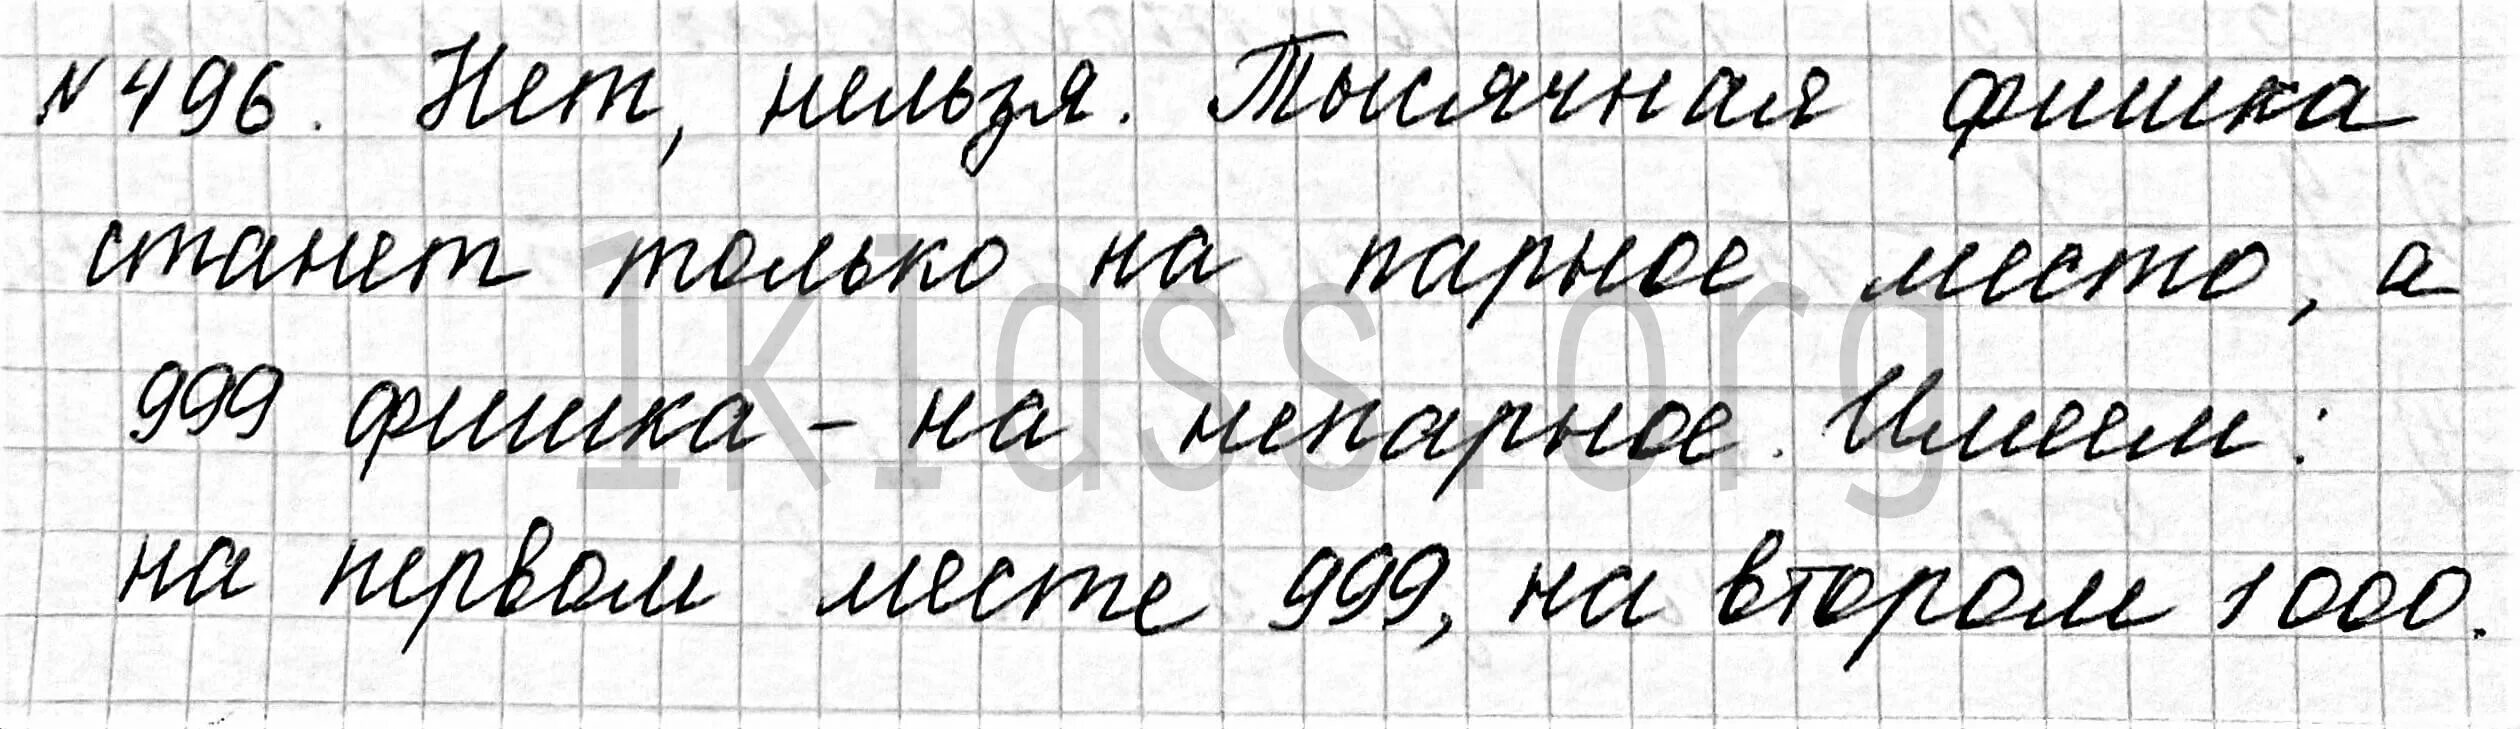 №496. Нет, нельзя. Тысячная фишка
станет только на парное место, а
999 фишка – на непарное. Имеем:
на первом месте 999, на втором 1000.
1klass.org